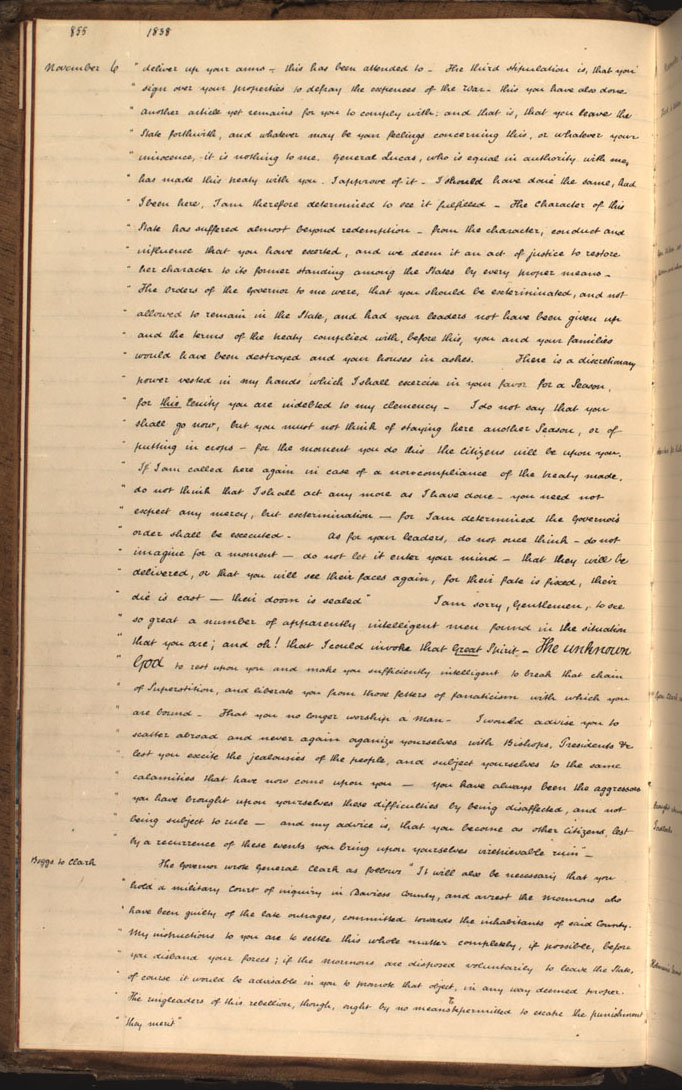 855 1838
November 6 " deliver up your arms – this has been attended to – The third stipulation is, that you
" sign over your properties to defray the expences of the war – this you have also done
" another article yet remains for you to comply with; and that is, that you leave the
" State forthwith, and whatever may be your feelings concerning this, or whatever your
" innocence, it is nothing to me. General Lucas, who is equal in authority with me,
" has made this treaty with you. I approve of it – I should have done the same, had
" I been here, I am therefore determined to see it fulfilled – The character of this
" State has suffered almost beyond redemption – from the character, conduct and
" influence that you have exerted, and we deem it an act of justice to restore
" her character to its former standing among the States by every proper means –
" The orders of the Governor to me were, that you should be exterminated, and not
" allowed to remain in the State, and had your leaders not have been given up
" and the terms of the treaty complied with, before this, you and your families
" would have been destroyed and your houses in ashes. There is a discretionary
" power vested in my hands which I shall exercise in your favor for a Season,
" for this lenity you are indebted to my clemency – I do not say that you
" shall go now, but you must not think of staying here another Season, or of
" putting in crops – for the moment you do this the Citizens will be upon you.
" If I am called here again in case of a noncompliance of the treaty made,
" do not think that I shall act any more as I have done – you need not
" expect any mercy, but extermination – for I am determined the Governor's
" order shall be executed – As for your leaders, do not once think – do not
" imagine for a moment – do not let it enter your mind – that they will be
" delivered, or that you will see their faces again, for their fate is fixed, their
" die is cast – their doom is sealed" I am sorry, Gentlemen, to see
" so great a number of apparently intelligent men found in the situation
" that you are; and oh! that I could invoke that Great Spirit – The unknown
" God to rest upon you and make you sufficiently intelligent to break that chain
" of Superstition, and liberate you from those fetters of fanaticism with which you
" are bound – That you no longer worship a Man – I would advise you to
" scatter abroad and never again oganize yourselves with Bishops, Presidents &c
" lest you excite the jealousies of the people, and subject yourselves to the same
" calamities that have now come upon you – you have always been the aggressors
" you have brought upon yourselves these difficulties by being disaffected, and not
" being subject to rule – and my advice is, that you become as other Citizens, lest
" by a recurrence of these events you bring upon yourselves irretrievable ruin" –
Boggs to Clark The Governor wrote General Clark as follows "It will also be necessary that you
" hold a military Court of inquiry in Daviess County, and arrest the mormons who
" have been guilty of the late outrages, committed towards the inhabitants of said County.
" My instructions to you are to settle this whole matter completely, if possible, before
" you disband your forces; if the mormons are disposed voluntarily to leave the State,
" of course it would be advisable in you to promote that object, in any way deemed proper.
" The ringleaders of this rebellion, though, ought by no means to be permitted to escape the punishment
" they merit"